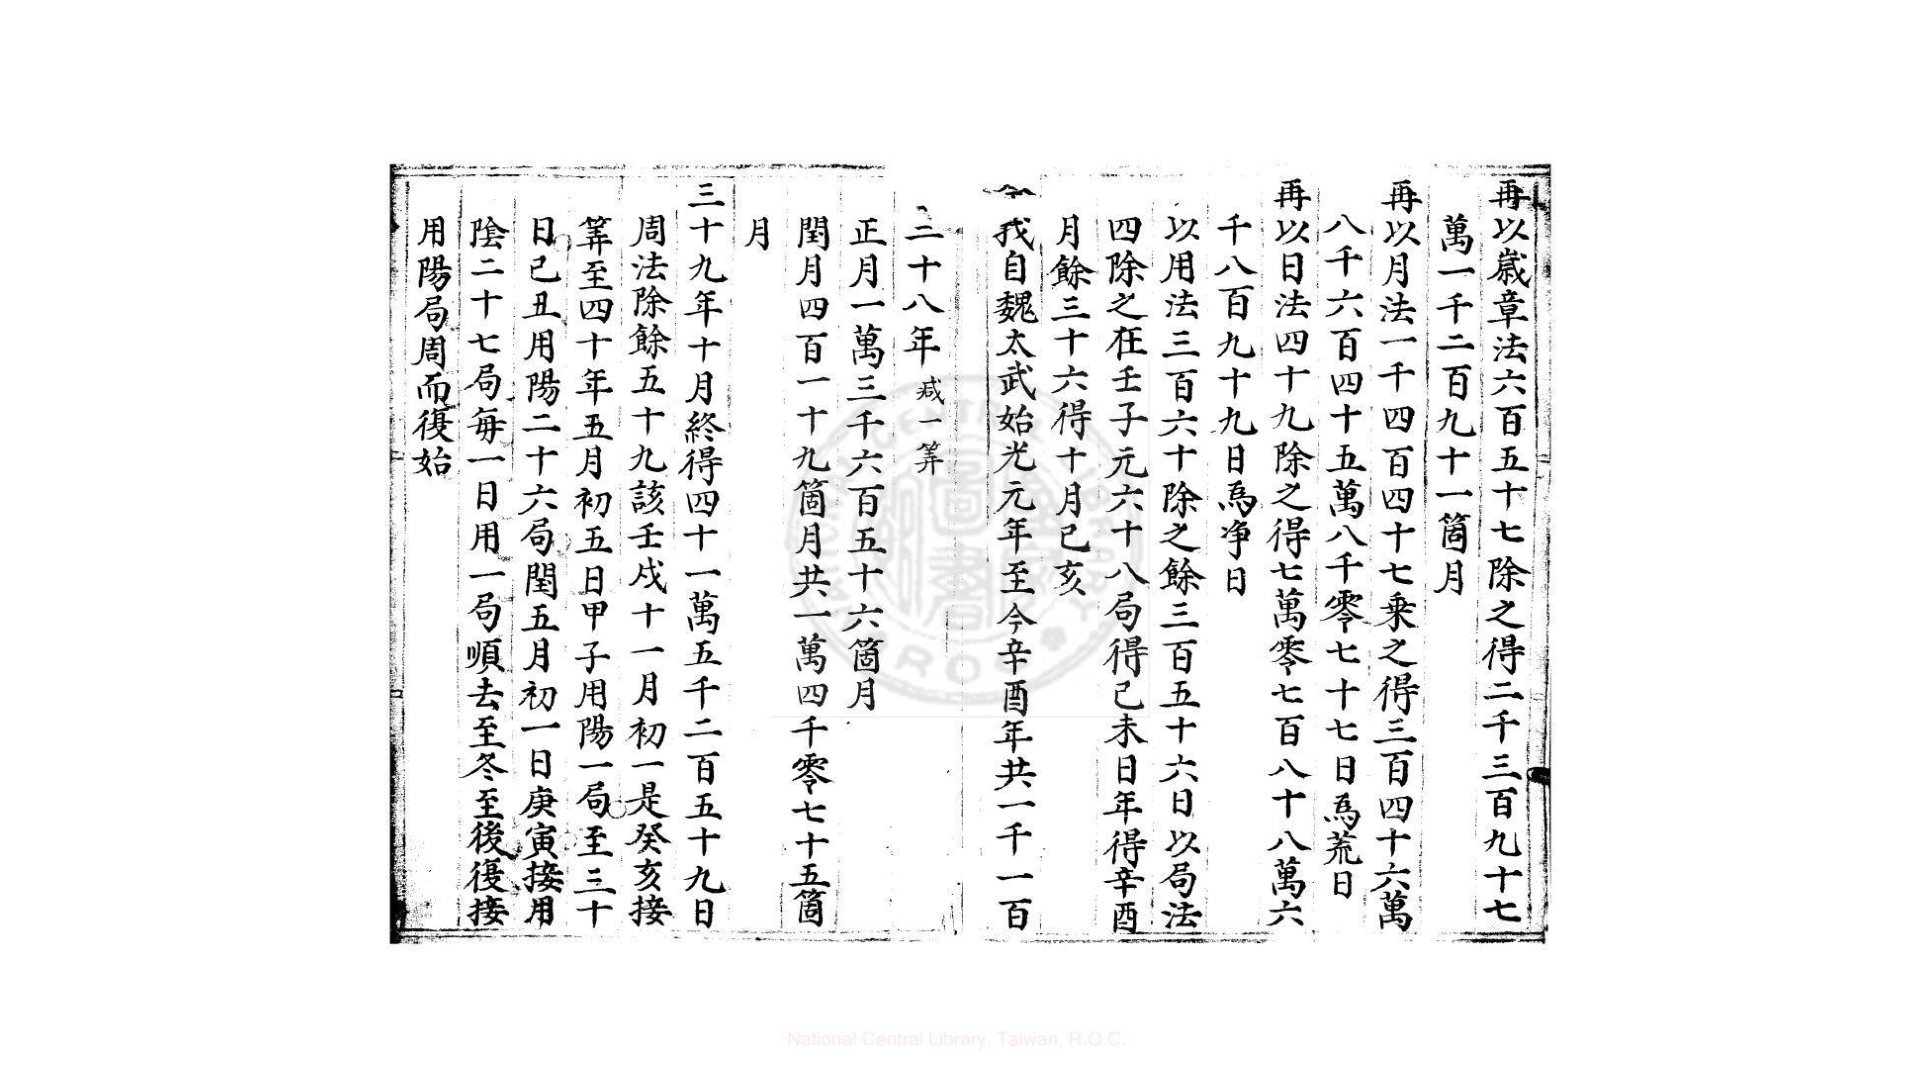 再以嵗章法六百五十七除之得二千三百九十七
萬一千二百九十一箇月
再以月法一千四百四十七乗之得三百四十六萬
八千六百四十五萬八千零七十七日爲荒日
再以日法四十九除之得七萬零七百八十八萬六
千八百九十九日爲净日
以用法三百六十除之餘三百五十六日以局法
四除之在壬子元六十八局得己未日年得辛酉
月餘三十六得十月己亥
我自魏太武始光元年至今辛酉年共一千一百
三十八年 减一筭
正月一萬三千六百五十六箇月
閏月四百一十九箇月共一萬四千零七十五箇
月
三十九年十月終得四十一萬五千二百五十九日
周法除餘五十九該壬戍十一月初一是癸亥接
筭至四十年五月初五日甲子用陽一局至三十
日己丑用陽二十六局閏五月初一日庚寅接用
陰二十七局每一日用一局順去至冬至後復接
用陽局周而復始
National Central Library, Taiwan, R.O.C.